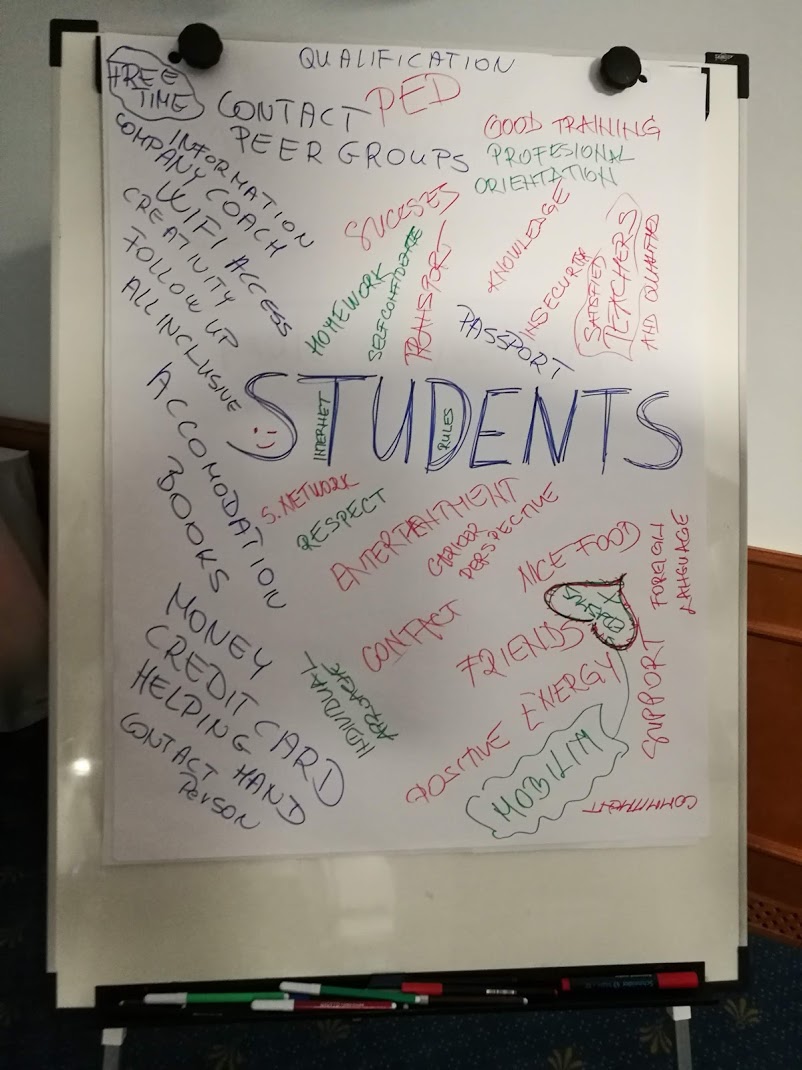 QUALIFICATION
FREE
TIME
CONTACT
PED
PEER GROUPS
GOOD TRAINING
PROFESIONAL
ORIENTATION
INFORMATION
COMPANY COACH
WIFI ACCESS
CREATIVITY
FOLLOW UP
ALL INCLUSIVE
SUCCSES
HOMEWORK
SELFCONFIDENCE
TRANSPORT
KNOWLEDGE
INSECURITY
PASSPORT
SATISFIED
TEACHERS
AND QUALIFIED
STUDENTS
INTERNET
RULES
ACCOMODATION
BOOKS
S. NETWORK
RESPECT
ENTERTAINTMENT
GENDER
PERSPECTIVE
NICE FOOD
FOREIGN
LANGUAGE
MONEY
CREDIT CARD
HELPING HAND
CONTACT
PERSON
INDIVIDUAL
CONTACT
FRIENDS
POSITIVE ENERGY
SUPPORT
MOBILITY
COMMITMENT